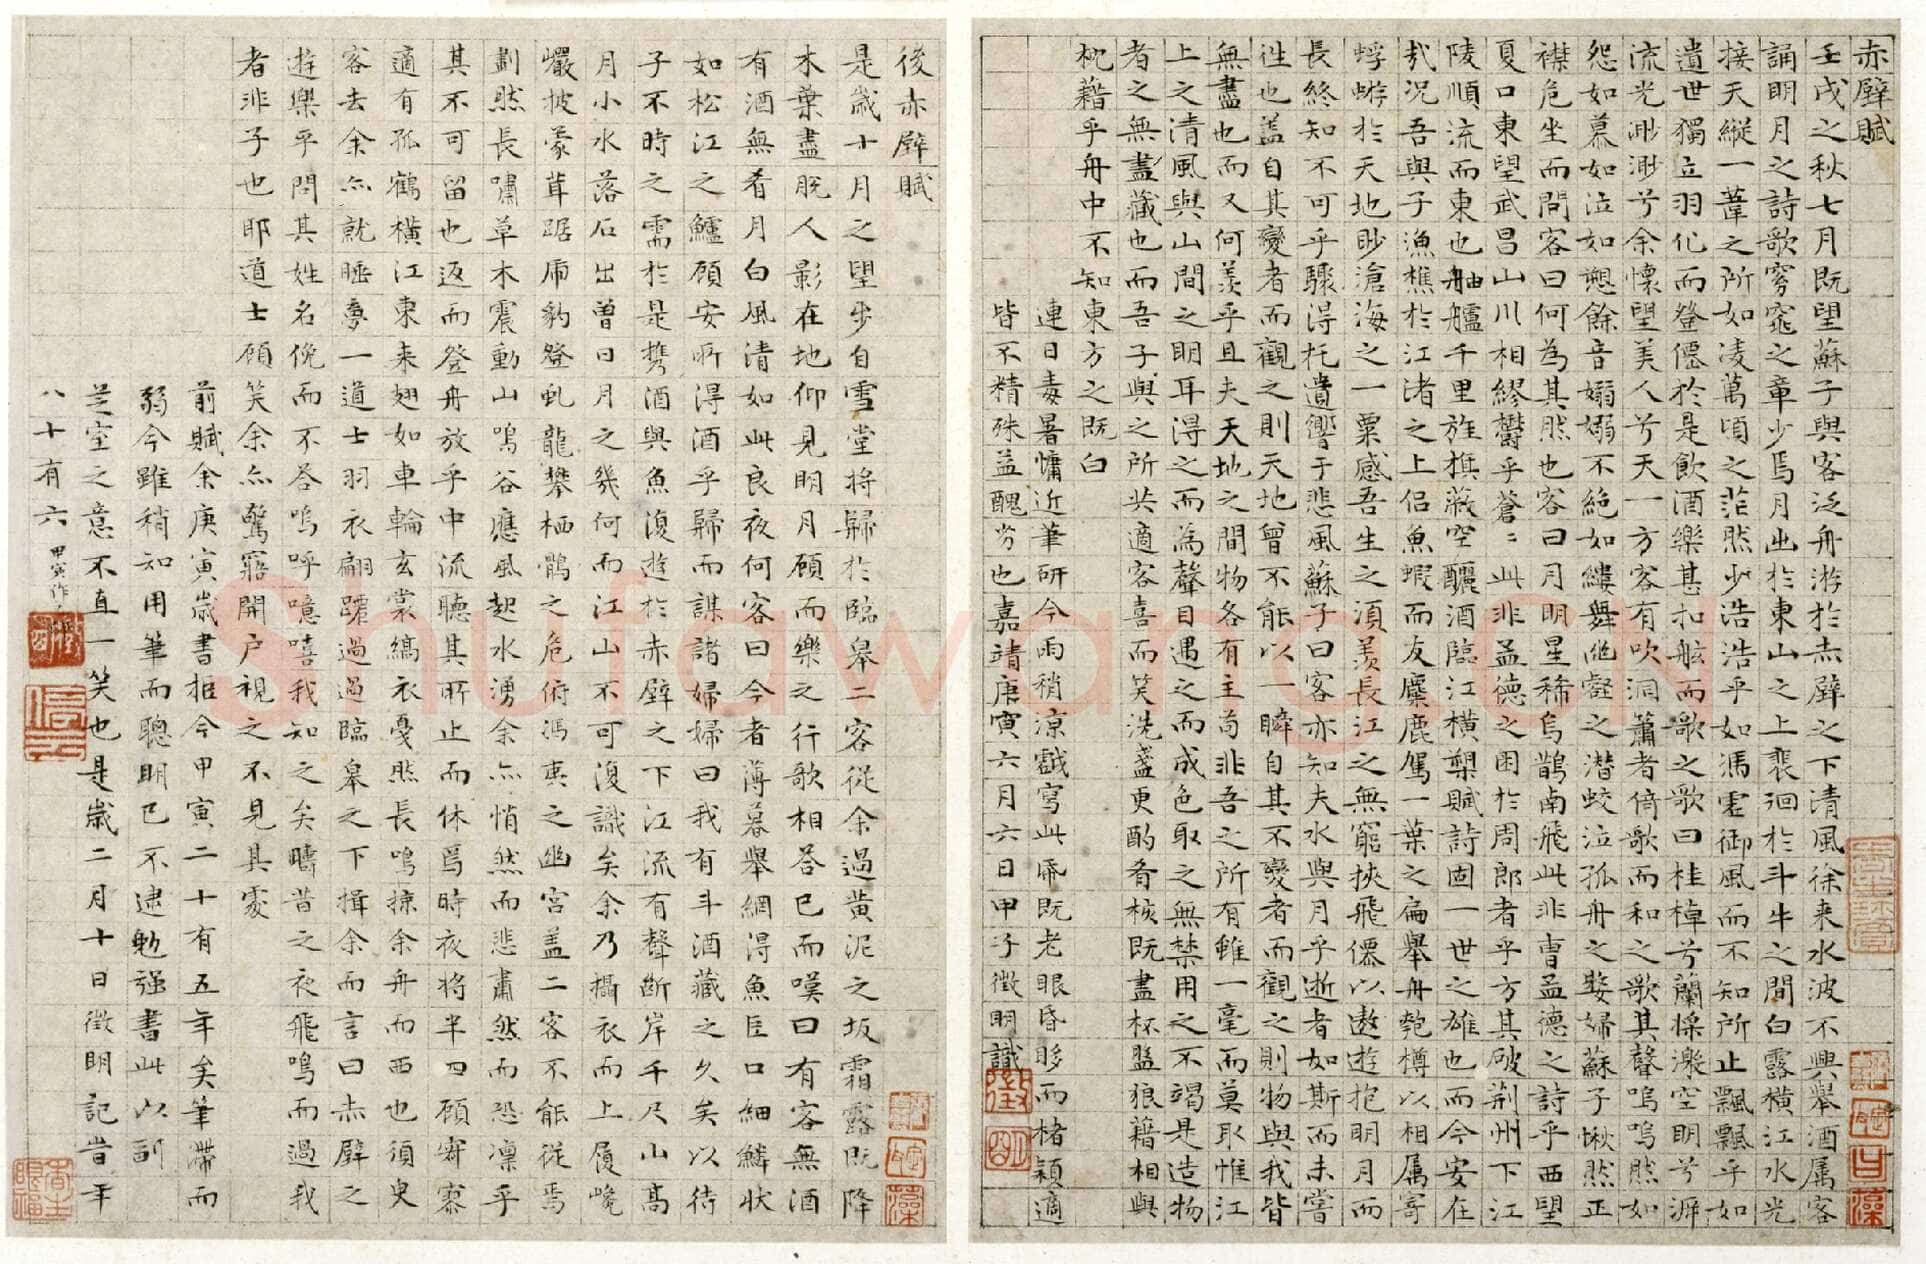 赤壁賦
壬戌之秋七月既望蘇子與客泛舟游於赤壁之下清風徐来水波不興舉酒属客
誦明月之詩歌窈窕之章少焉月出於東山之上裴洄於斗牛之間白露横江水光
接天縱一葦之所如凌萬頃之茫然少浩浩乎如馮虚御風而不知所止飄飄乎如
遺世獨立羽化而登僊於是飲酒樂甚扣舷而歌之歌曰桂棹兮蘭槳擊空明兮泝
流光渺渺兮余懷望美人兮天一方客有吹洞簫者倚歌而和之歌其聲嗚嗚然如
怨如慕如泣如愬餘音嫋嫋不絶如縷舞幽壑之潛蛟泣孤舟之嫠婦蘇子愀然正
襟危坐而問客曰何為其然也客曰月明星稀烏鵲南飛此非曹孟德之詩乎西望
夏口東望武昌山川相繆鬱乎蒼〻此非孟德之困於周郎者乎方其破荆州下江
陵順流而東也舳艫千里旌旗蔽空釃酒臨江横槊賦詩固一世之雄也而今安在
哉况吾與子漁樵於江渚之上侣魚蝦而友麋鹿駕一葉之扁舉舟匏樽以相属寄
蜉蝣於天地眇滄海之一粟感吾生之湏羨長江之無窮挾飛僊以遨遊抱明月而
長終知不可乎驟得托遺響于悲風蘇子曰客亦知夫水與月乎逝者如斯而未嘗
往也盖自其變者而觀之則天地曾不能以一瞬自其不變者而觀之則物與我皆
無盡也而又何羨乎且夫天地之間物各有主苟非吾之所有雖一毫而莫取惟江
上之清風與山間之明耳得之而為聲目遇之而成色取之無禁用之不竭是造物
者之無盡藏也而吾子與之所共適客喜而笑洗盞更酌肴核既盡杯盤狼籍相與
枕藉乎舟中不知東方之既白
連日毒暑慵近筆研今雨稍凉戲寫此帋既老眼昏眵而楮穎適
皆不精殊益醜劣也嘉靖庚寅六月六日甲子徵明識
徵
明
後赤壁賦
是歲十月之望步自雪堂将歸於臨皋二客従余過黄泥之坂霜露既降
木葉盡脱人影在地仰見明月顧而樂之行歌相荅已而嘆曰有客無酒
有酒無肴月白風清如此良夜何客曰今者薄暮舉網得魚巨口細鱗狀
如松江之鱸顧安所得酒乎歸而謀諸婦婦曰我有斗酒藏之久矣以待
子不時之需於是携酒與魚復遊於赤壁之下江流有聲斷岸千尺山高
月小水落石出曽日月之幾何而江山不可復識矣余乃攝衣而上履巉
巖披蒙茸踞虎豹登虬龍攀栖鶻之危俯馮夷之幽宫盖二客不能従焉
劃然長嘯草木震動山鳴谷應風起水湧余亦悄然而悲肅然而恐凛乎
其不可留也返而登舟放乎中流聽其所止而休焉時夜将半四顧寂寥
適有孤鶴横江東来翅如車輪玄裳縞衣戛然長鳴掠余舟而西也須臾
客去余亦就睡夢一道士羽衣翩躚過過臨皋之下揖余而言曰赤壁之
遊樂乎問其姓名俛而不荅嗚呼噫嘻我知之矣疇昔之夜飛鳴而過我
者非子也耶道士顧笑余亦驚寤開户視之不見其處
前賦余庚寅歲書拒今甲寅二十有五年矣筆滯而
弱今雖稍知用筆而聰明已不逮勉强書此以副
芝室之意不直一笑也是歲二月十日徵明記昔年
八十有六
shufawang.cn